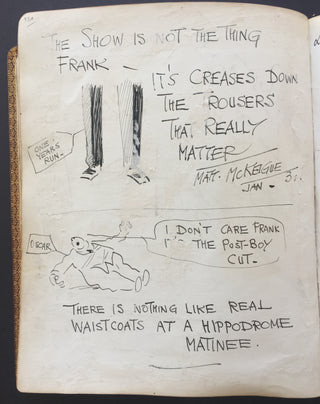 THE SHOW IS NOT THE THING
FRANK —
IT'S CREASES DOWN
THE TROUSERS
THAT REALLY
MATTER
ONE
YEARS
RUN.
MATT. MCKEIGUE
JAN
OSCAR
I DON'T CARE FRANK
THE POST-BOY
CUT.
THERE IS NOTHING LIKE REAL
WAISTCOATS AT A HIPPODROME
MATINEE.